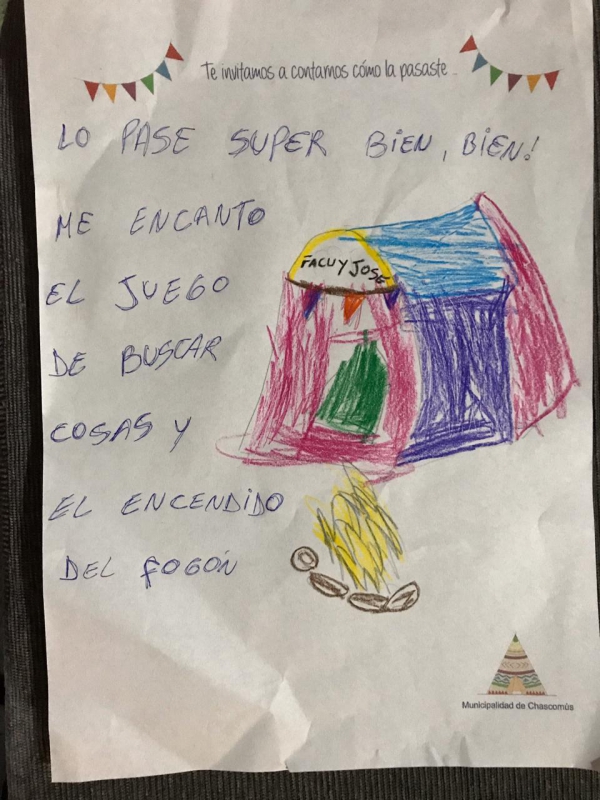 Te invitamos a contarnos cómo la pasaste...
LO PASE SUPER BIEN, BIEN!
ME ENCANTO
EL JUEGO
DE BUSCAR
COSAS Y
EL ENCENDIDO
DEL FOGÓN
FACU Y JOSE
Municipalidad de Chascomús